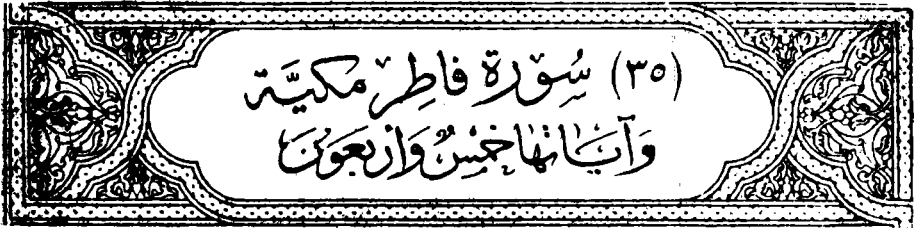 (٣٥) سُوْرَة فَاطِر مَكيَّة
وَآيَاتها خَمْسٌ وَأربَعُونَ